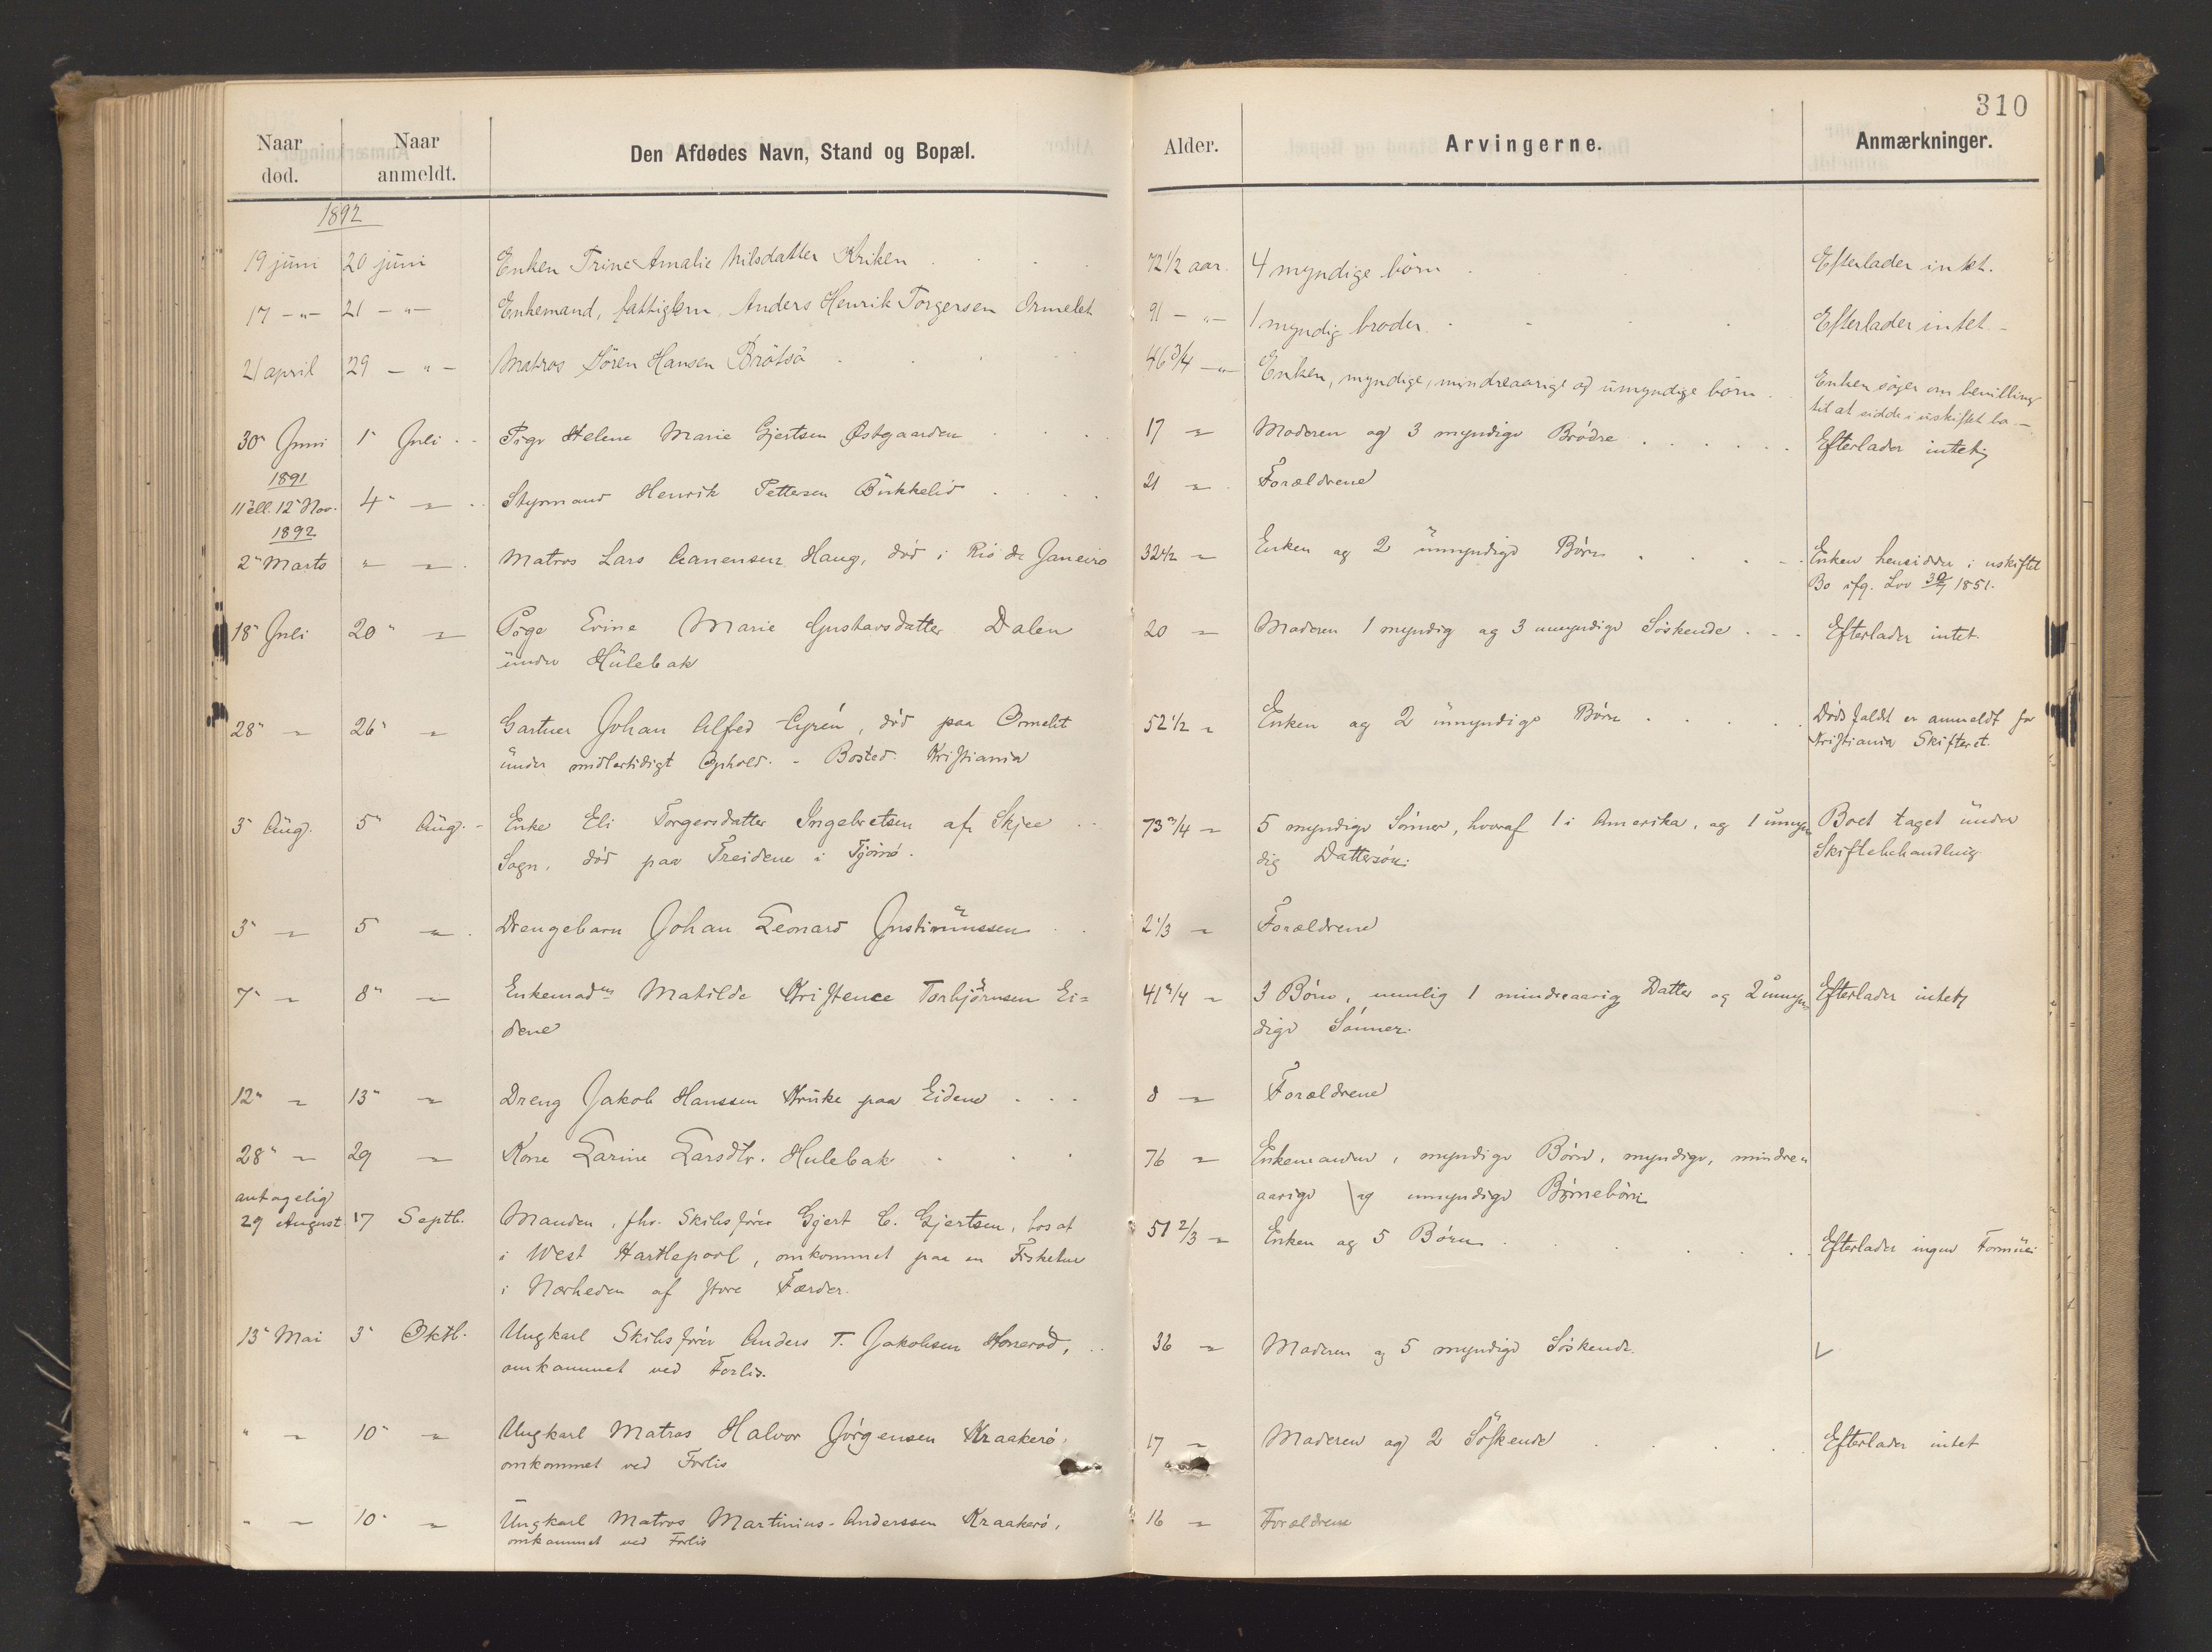 310
Naar død. Naar anmeldt. Den Afdødes Navn, Stand og Bopæl. Alder. Arvingerne. Anmærkninger.
1892
19 juni 20 juni Enken Trine Amalie Nilsdatter Kriken 72 1/2 aar. 4 myndige börn Efterlader intet.
17 -"- 21 -"- Enkemand, fattiglem Anders Henrik Torgersen Ormelet 91 -"- 1 myndig broder. Efterlader intet -
21 april 29 -"- Matros Sören Hansen Brötsö 46 3/4 -"- Enken, myndige, mindreaarige og umyndige börn. Enken söger om bevilling
til at sidde i uskiftet bo -
30" Juni 1" Juli Pige Helene Marie Gjertsen Østgaarden 17 " Moderen og 3 myndige Brødre Efterlader intet
1891
11" ell. 12" Nov. 4" " Styrmand Henrik Pettersen Bukkelid 21 " Forældrene
1892
2" Marts " " Matros Lars Aanensen Haug, död i Rio de Janeiro 32 1/2 " Enken og 2 umyndige Börn Enken hensidder i uskiftet
Bo ifg. Lov 30/7 1851.
18" Juli 20" " Pige Evine Marie Gustavsdatter Dalen 20 " Moderen 1 myndig og 3 umyndige Söskende Efterlader intet.
under Hulebak
28" " 26" " Gartner Johan Alfred död paa Ormelet 52 1/2 " Enken og 2 umyndige Börn Dödsfaldet er anmeldt for
under midlertidigt Ophold. - Bosted: Kristiania Kristiania Skifteret.
3" Aug. 5" Aug. Enke Eli Torgersdatter Ingebretsen af Skjee 73 3/4 " 5 myndige Sönner, hvoraf 1 i Amerika, og 1 umyn Boet taget under
Sogn, död paa Treidene i Tjömö. dig Dattersön. Skiftebehandling.
3" " 5 " Drengebarn Johan Leonard Justinussen 2 1/3 " Forældrene
7" " 8" " Enkemadm Matilde Kristence Torbjörnsen Ei= 41 3/4 " 3 Börn, nemlig 1 mindreaarig Datter og 2 umyn Efterlader intet
dene dige Sönner.
12" " 13" " Dreng Jakob Hanssen Kruke paa Eidene 8 " Forældrene
28" " 29 " Kone Larine Larsdtr. Hulebak 76 " Enkemanden, myndige Börn, myndige, mindre"
aarige og umyndige Börnebörn
antagelig
29 August 17 Septb. Manden, fhv. Skibsförer Gjert C. Gjertsen, bosat 51 2/3 " Enken og 5 Börn Efterlader ingen Formue
i West Hartlepool, omkommet paa en Fisketur
i Nærheden af store Færder.
13" Mai 3" Oktb. Ungkarl Skibsförer Anders T. Jakobsen Honneröd, 36 " Moderen og 5 myndige Söskende.
omkommet ved Forlis.
" " 10" " Ungkarl Matros Halvor Jörgensen Kraakerö, 17 " Moderen og 2 Söskende Efterlader intet
omkommet ved Forlis
" " 10" " Ungkarl Matros Martinius Anderssen Kraakerö, 16 " Forældrene
omkommet ved Forlis